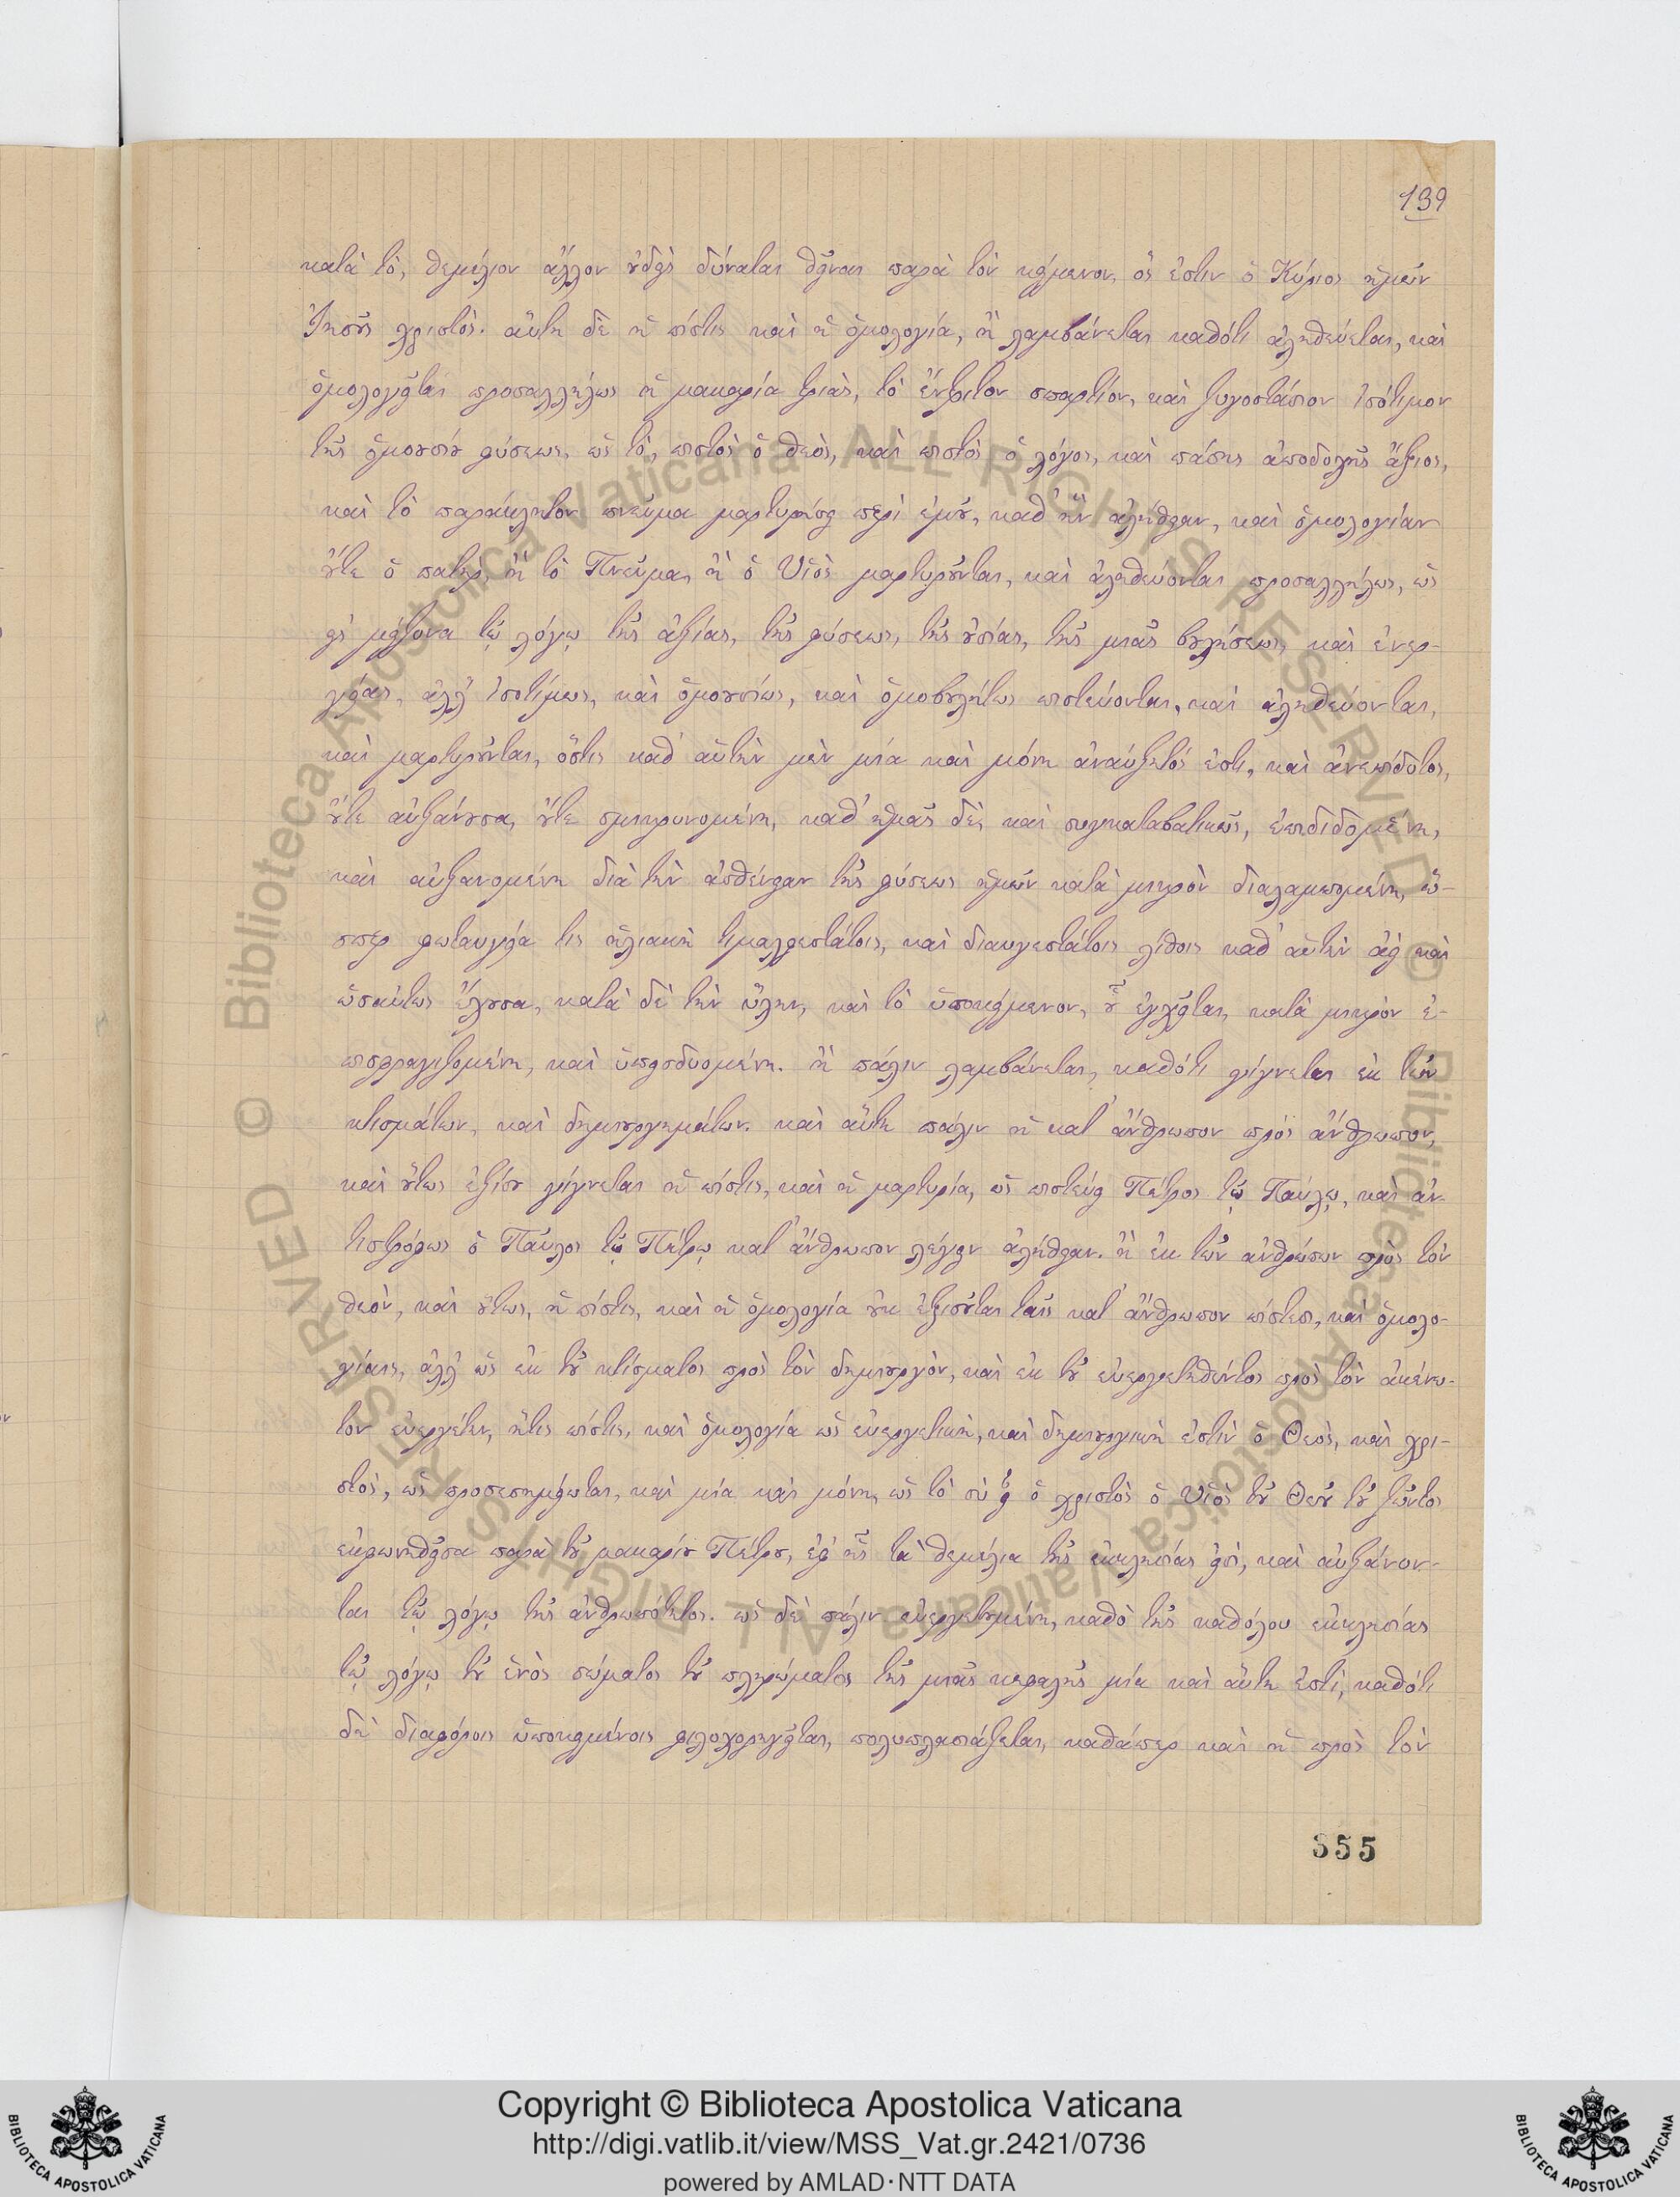 139
κατὰ τὸ, θεμέλιον ἄλλον οὐδεὶς δύναται θεῖναι παρὰ τὸν κείμενον, ὅς ἐστιν ὁ Κύριος ἡμῶν
Ἰησοῦς χριστός. αὕτη δὲ ἡ πίστις καὶ ἡ ὁμολογία, ἢ λαμβάνεται καθότι ἀληθεύεται, καὶ
ὁμολογεῖται προσαλλήλως ἡ μακαρία τριὰς, τὸ ἔντριτον σπαρτίον, καὶ ζυγοστάσιον ἰσότιμον
τῆς ὁμοουσίου φύσεως, ὡς τὸ, πιστὸς ὁ θεὸς, καὶ πιστὸς ὁ λόγος, καὶ πάσης ἀποδοχῆς ἄξιος,
καὶ τὸ παράκλητον πνεῦμα μαρτυρήσει περὶ ἐμοῦ, καθ' ἣν ἀλήθειαν, καὶ ὁμολογίαν
οὔτε ὁ πατὴρ, ἢ τὸ Πνεῦμα, ἢ ὁ Υἱὸς μαρτυροῦνται, καὶ ἀληθεύονται προσαλλήλως, ὡς
εἰς μείζονα τῷ λόγῳ τῆς ἀξίας, τῆς φύσεως, τῆς οὐσίας, τῆς μιᾶς βουλήσεως, καὶ ἐνερ-
γείας, ἀλλ' ἰσοτίμως, καὶ ὁμοουσίως, καὶ ὁμοβουλήτως πιστεύονται, καὶ ἀληθεύονται,
καὶ μαρτυροῦνται, ὅστις καθ' αὑτὴν μὲν μία καὶ μόνη ἀναύξητός ἐστι, καὶ ἀνεπίδοτος,
οὔτε αὐξάνουσα, οὔτε σμικρυνομένη, καθ' ἡμᾶς δὲ, καὶ συγκαταβατικῶς, ἐπιδιδομένη,
καὶ αὐξανομένη διὰ τὴν ἀσθένειαν τῆς φύσεως ἡμῶν κατὰ μικρὸν διαλαμπομένη, ὥ-
σπερ φωταυγεία τις ἡλιακὴ τιμαλφεστάτοις, καὶ διαυγεστάτοις λίθοις καθ' αὑτὴν ἀεὶ καὶ
ὡσαύτως ἔχουσα, κατὰ δὲ τὴν ὕλην, καὶ τὸ ὑποκείμενον, οὗ ἐγχεῖται, κατὰ μικρὸν ἐ-
πισφραγιζομένη, καὶ ὑπεισδυομένη. ἢ πάλιν λαμβάνεται, καθότι γίγνεται ἐκ τῶν
κτισμάτων, καὶ δημιουργημάτων. καὶ αὕτη πάλιν ἡ κατ' ἄνθρωπον πρὸς ἄνθρωπον,
καὶ οὕτως ἐξίσου γίγνεται ἡ πίστις, καὶ ἡ μαρτυρία, ὡς πιστεύει Πέτρος τῷ Παύλῳ, καὶ ἀν-
τιστρόφως ὁ Παῦλος τῷ Πέτρῳ κατ' ἄνθρωπον λέγειν ἀλήθειαν. ἢ ἐκ τῶν ἀνθρώπων πρὸς τὸν
θεὸν, καὶ οὕτως, ἡ πίστις, καὶ ἡ ὁμολογία οὐκ ἐξισοῦται ταῖς κατ' ἄνθρωπον πίστεσι, καὶ ὁμολο-
γίαις, ἀλλ' ὡς ἐκ τοῦ κτίσματος πρὸς τὸν δημιουργὸν, καὶ ἐκ τοῦ εὐεργετηθέντος πρὸς τὸν ἀκένω-
τον εὐεργέτην, ἥτις πίστις, καὶ ὁμολογία ὡς εὐεργετικὴ, καὶ δημιουργικὴ ἐστὶν ὁ Θεὸς, καὶ χρι-
στὸς, ὡς προσεσημείωται, καὶ μία καὶ μόνη, ὡς τὸ σὺ εἶ ὁ χριστὸς ὁ Υἱὸς τοῦ Θεοῦ τοῦ ζῶντος
ἐκφωνηθεῖσα παρὰ τοῦ μακαρίου Πέτρου, ἐφ' ἧς τὰ θεμέλια τῆς ἐκκλησίας εἰσὶ, καὶ αὐξάνον-
ται τῷ λόγῳ τῆς ἀνθρωπότητος. ὡς δὲ πάλιν εὐεργετουμένη, καθὸ τῆς καθόλου ἐκκλησίας
τῷ λόγῳ τοῦ ἑνὸς σώματος τοῦ πληρώματος τῆς μιᾶς κεφαλῆς μία καὶ αὕτη ἐστὶ, καθότι
δὲ διαφόροις ὑποκειμένοις φιλοχορηγεῖται, πολυπλασιάζεται, καθάπερ καὶ ἡ πρὸς τὸν
355
© Biblioteca Apostolica Vaticana ALL RIGHTS RESERVED
Copyright © Biblioteca Apostolica Vaticana
http://digi.vatlib.it/view/MSS_Vat.gr.2421/0736
powered by AMLAD·NTT DATA
BIBLIOTECA APOSTOLICA VATICANA
BIBLIOTECA APOSTOLICA VATICANA